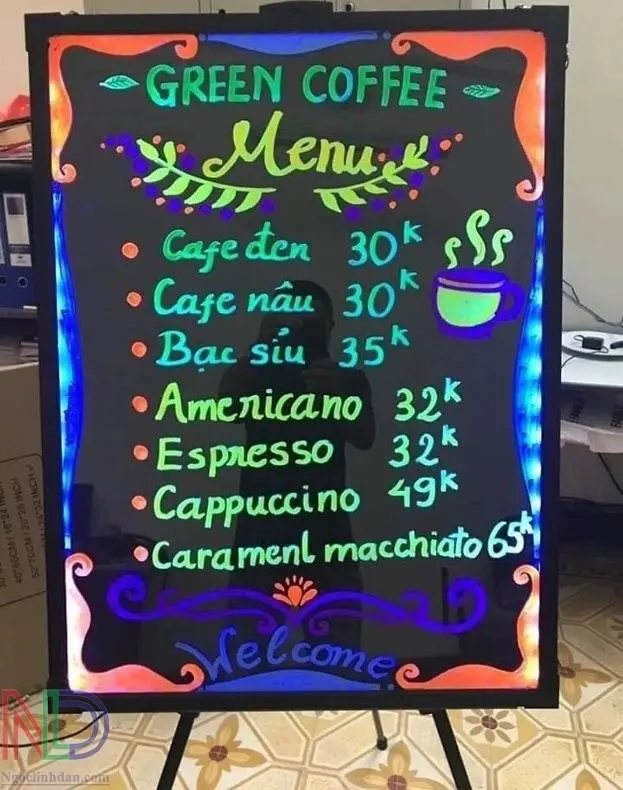 GREEN COFFEE
Menu
Cafe đen 30k
Cafe nâu 30k
Bạc sỉu 35k
Americano 32k
Espresso 32k
Cappuccino 49k
Caramenl macchiato 65k
Welcome
NLD
Ngoclinhdan.com